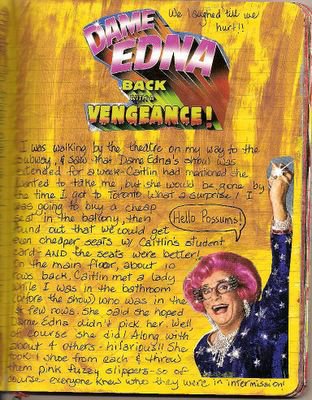 We laughed till we
hurt!!
DAME
EDNA
BACK
WITH A
VENGEANCE!
I was walking by the theatre on my way to the
subway, & saw that Dame Edna's show was
extended for a week - Caitlin had mentioned she
wanted to take me, but she would be gone by
the time I got to Toronto. What a surprise! I
was going to buy a cheap
seat in the balcony, then
found out that we could get
even cheaper seats w/ Caitlin's student
card - AND the seats were better!
On the main floor, about 10
rows back. Caitlin met a lady
while I was in the bathroom
(before the show) who was in the
1st few rows. She said she hoped
Dame Edna didn't pick her. Well,
of course she did! Along with
about 4 others - hilarious!! She
took 1 shoe from each & threw
them pink fuzzy slippers - so of
course everyone knew who they were in intermission!
Hello Possums!